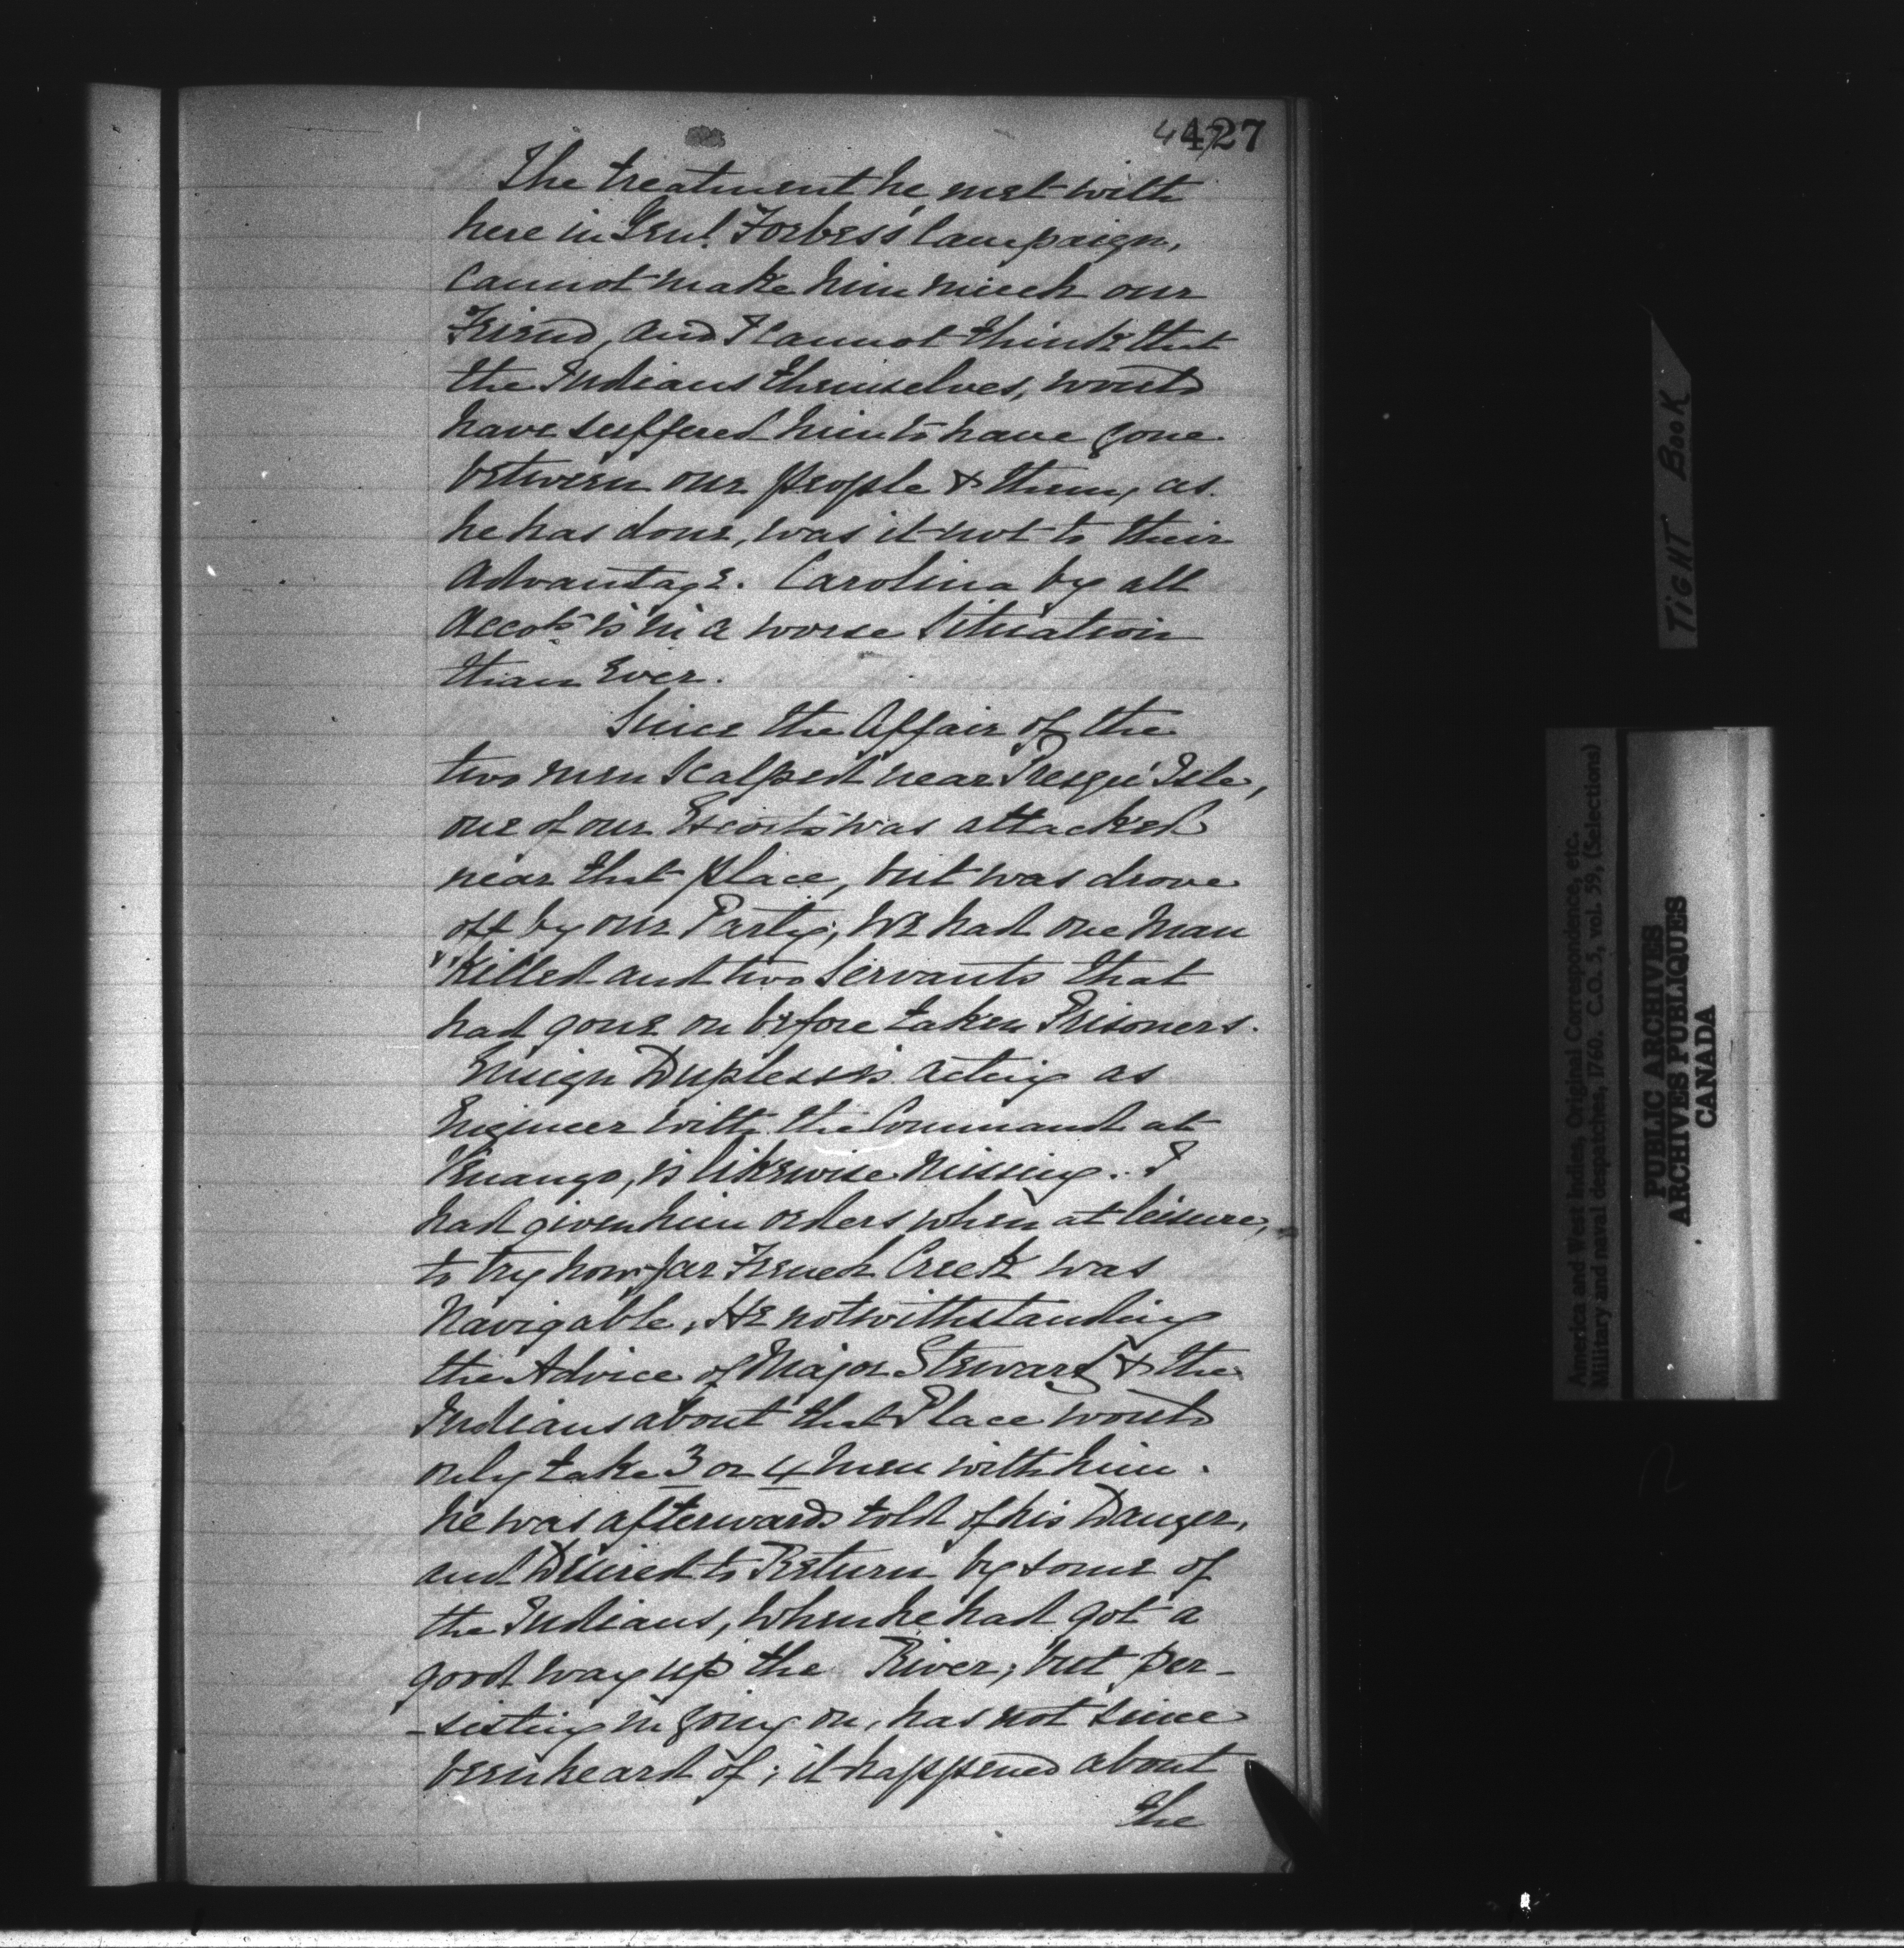 427
The treatment he met with
here in Genl. Forbes's Campaign,
Cannot make him much our
Friend, and I Cannot think that
the Indians themselves, would
have suffered him to have gone
between our people & them, as
he has done, was it not to their
Advantage. Carolina by all
Accots is in a worse Situation
than Ever.
Since the Affair of the
two men Scalped near Presqu' Isle,
one of our Escorts was attacked
near that place, but was drove
off by our Party, We had one Man
Killed and two Servants that
had gone on before taken Prisoners.
Ensign Duplessis acting as
Engineer with the Command at
Venango, is likewise Missing. I
had given him orders when at leisure,
to try how far French Creek was
Navigable, He notwithstanding
the Advice of Major Steward & the
Indians about that Place would
only take 3 or 4 Men with him.
he was afterwards told of his Danger,
and Desired to Return by some of
the Indians, when he had got a
good way up the River; but per-
-sisting in going on, has not since
been heard of; it happened about
the
TIGHT BOOK
America and West Indies, Original Correspondence, etc.
Military and naval despatches, 1760. C.O. 5, vol. 59, (Selections)
PUBLIC ARCHIVES
ARCHIVES PUBLIQUES
CANADA